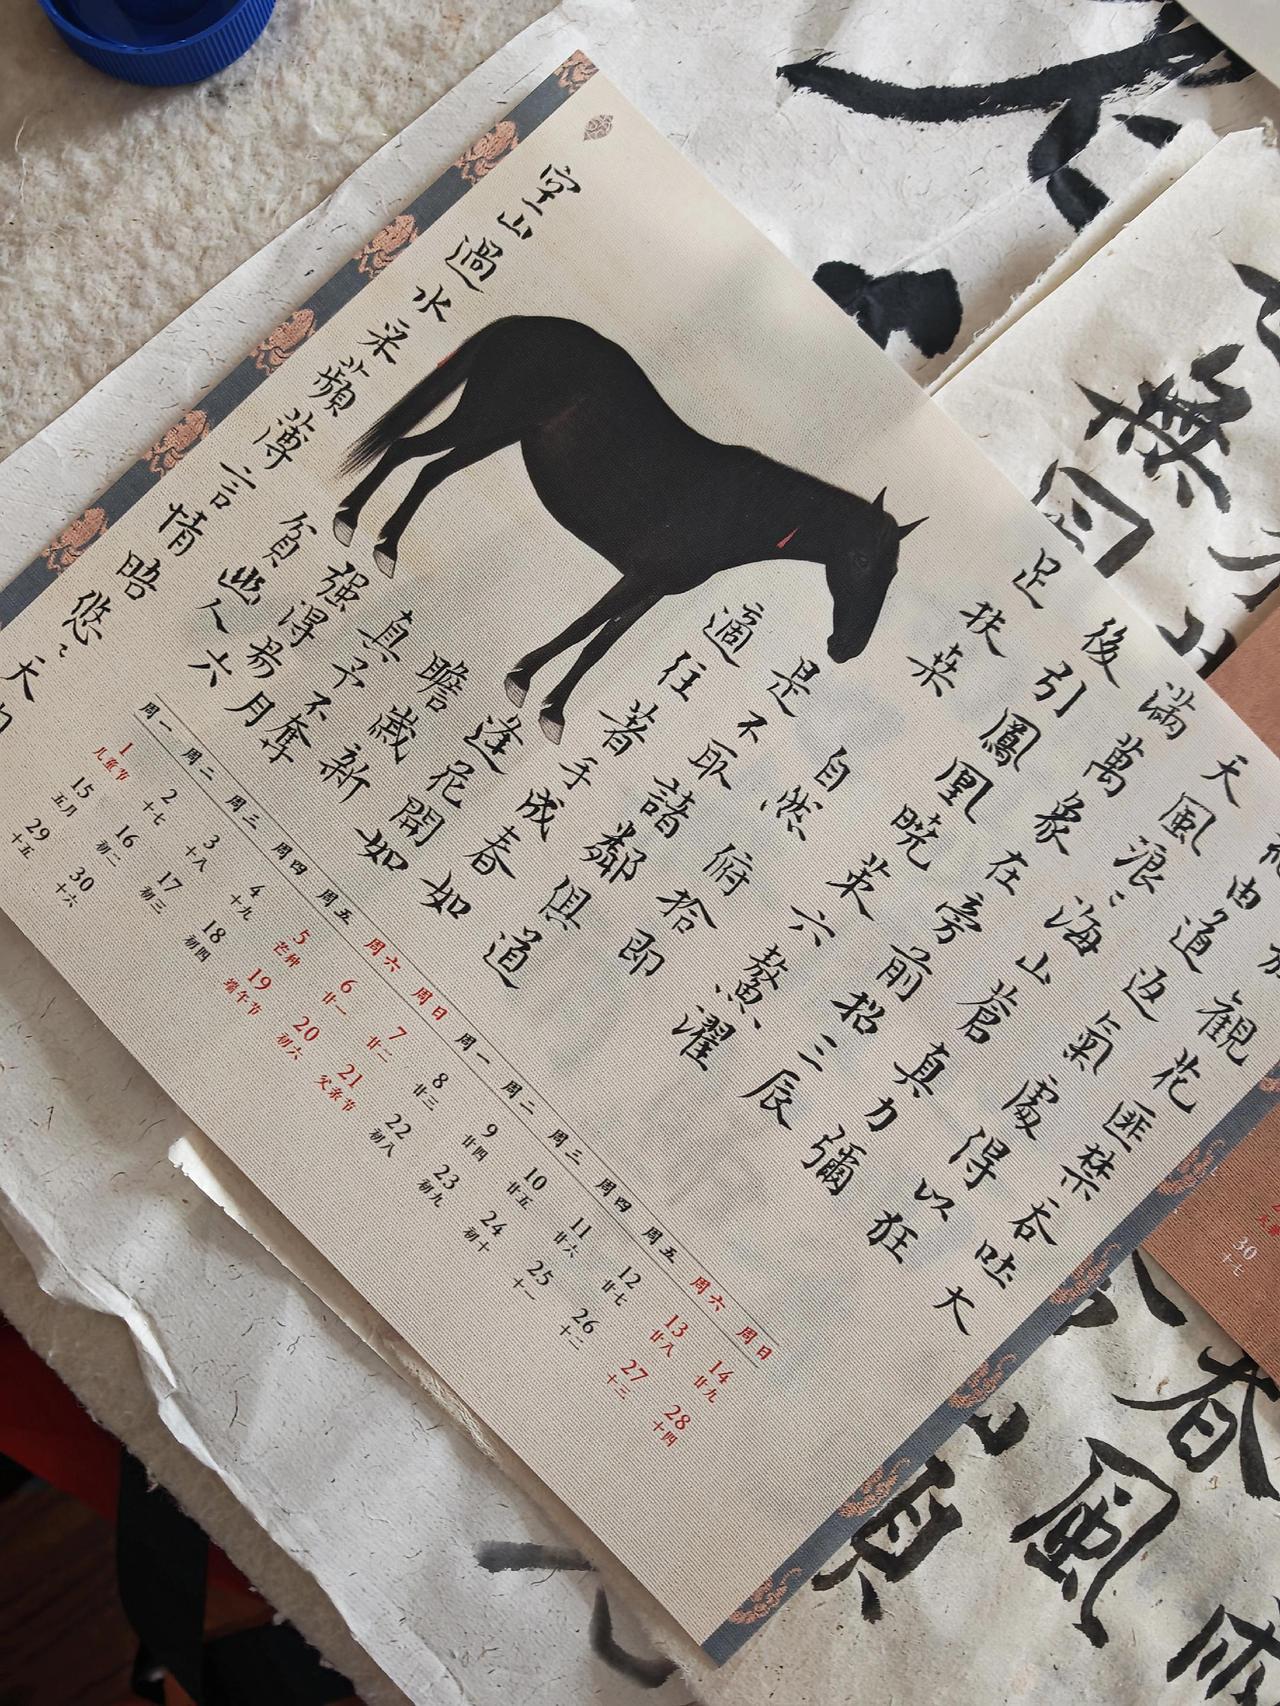 觀花匪禁吞吐大
由道返氣處得以狂
天風浪〻海山蒼真力彌
滿萬象在旁前招三辰
後引鳳凰曉策六鰲濯
足扶桑 自然 俯拾即
是不取諸鄰俱道
適往著手成春如
逢花開如
瞻歲新
真予不奪
强得易
貧幽人
空山過水采蘋薄言情晤悠〻天
六月
周一 周二 周三 周四 周五 周六 周日 周一 周二 周三 周四 周五 周六 周日
1 2 3 4 5 6 7 8 9 10 11 12 13 14
儿童节 十七 十八 十九 芒种 廿一 廿二 廿三 廿四 廿五 廿六 廿七 廿八 廿九
15 16 17 18 19 20 21 22 23 24 25 26 27 28
五月 初二 初三 初四 端午节 初六 父亲节 初八 初九 初十 十一 十二 十三 十四
29 30
十五 十六
無
春
風
30
十七